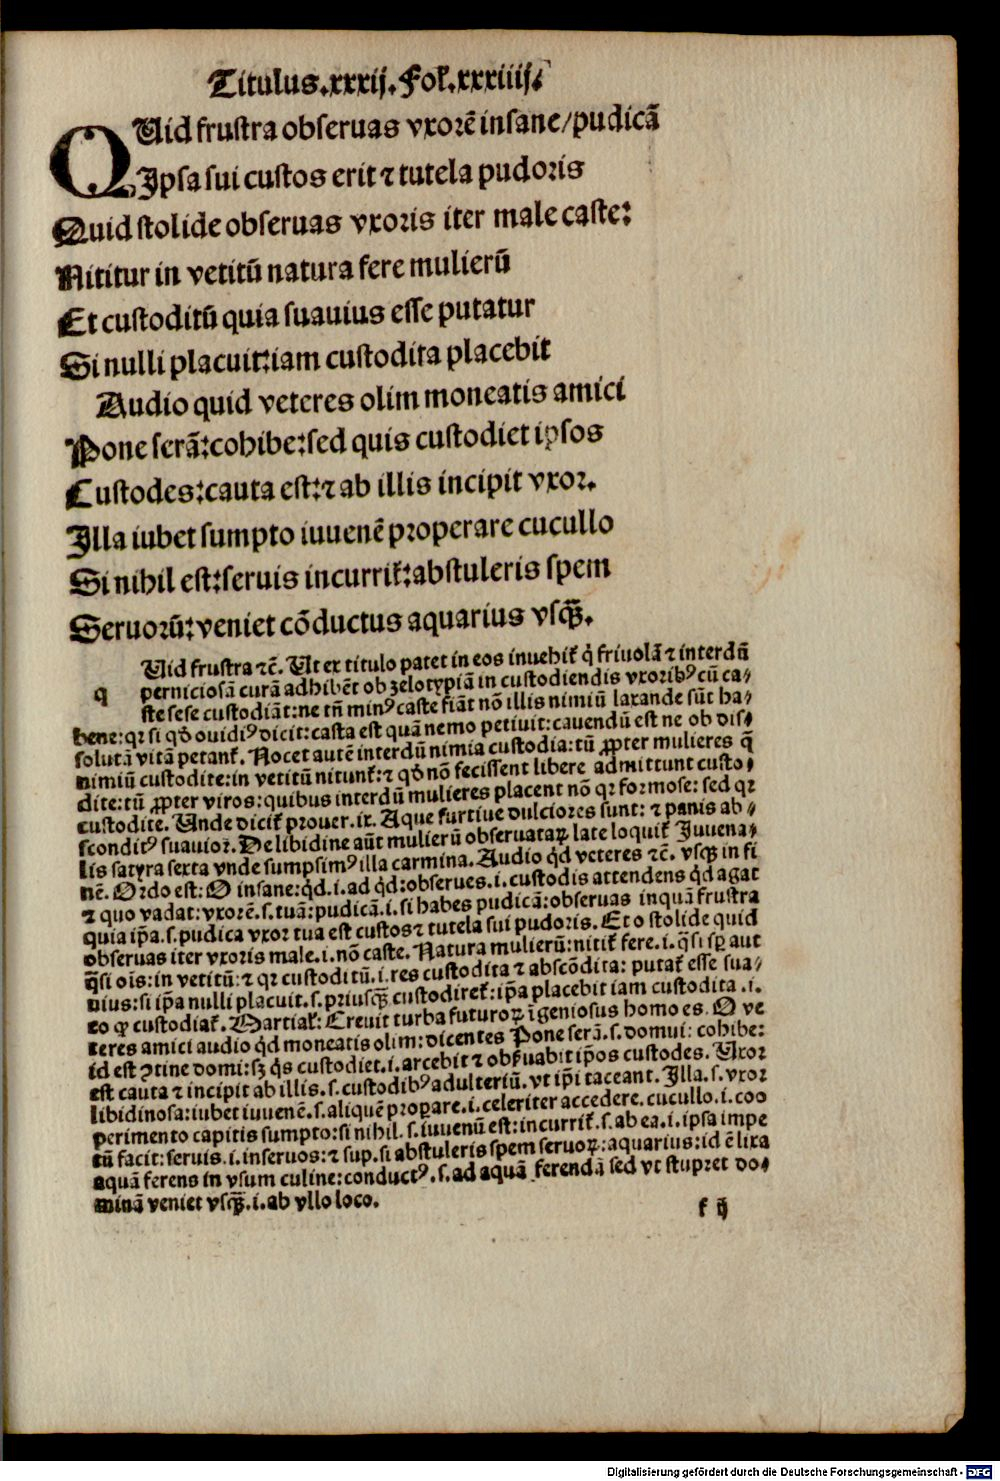 Titulus.xxxij. Fol.xxxiiij.
QVid frustra obseruas vxorē insane/pudicā
Ipsa sui custos erit ⁊ tutela pudoris
Quid stolide obseruas vxoris iter male caste:
Nititur in vetitū natura fere mulierū
Et custoditū quia suauius esse putatur
Si nulli placuit:iam custodita placebit
Audio quid veteres olim moneatis amici
Pone serā:cohibe:sed quis custodiet ipsos
Custodes:cauta est:⁊ ab illis incipit vxor.
Illa iubet sumpto iuuenē properare cucullo
Si nihil est:seruis incurrit̄:abstuleris spem
Seruorū:veniet cōductus aquarius vsq̄ꝫ.
Uid frustra ⁊c̄. Ut ex titulo patet in eos inuehit̄ q̄ friuolā ⁊ interdū
q perniciosā curā adhibēt ob zelotypiā in custodiendis vxoribꝰ cū ca⸗
ste sese custodiāt:ne tn̄ minꝰ caste fiāt nō illis nimiū laxande sūt ha⸗
bene:qꝛ si qd̄ ouidiꝰ dicit:casta est quā nemo petiuit:cauendū est ne ob dis⸗
solutā vitā petant̄. Nocet autē interdū nimia custodia:tū ꝓpter mulieres q̄
nimiū custodite:in vetitū nitunt̄:⁊ qd̄ nō fecissent libere admittunt custo⸗
dite:tū ꝓpter viros:quibus interdū mulieres placent nō qꝛ formose: sed qꝛ
custodite. Unde dicit̄ prouer.ix. Aque furtiue dulciores sunt: ⁊ panis ab⸗
sconditꝰ suauior. De libidine aūt mulierū obseruataꝝ late loquit̄ Juuena⸗
lis satyra sexta vnde sumpsimꝰ illa carmina. Audio qd̄ veteres ⁊c̄. vsqꝫ in fi
nē. Ordo est: O insane:qd̄.i.ad qd̄:obserues.i.custodis attendens qd̄ agat
⁊ quo vadat:vxorē.s.tuā:pudicā.i.si habes pudicā:obseruas inquā frustra
quia ip̄a.s.pudica vxor tua est custos ⁊ tutela sui pudoris. Et o stolide quid
obseruas iter vxoris male.i.nō caste. Natura mulierū:nitit̄ fere.i.q̄si sꝑ aut
q̄si oīs:in vetitū:⁊ qꝛ custoditū.i.res custodita ⁊ abscōdita: putat̄ esse sua⸗
uius:si ip̄a nulli placuit.s.priusqꝫ̄ custodiret̄:ip̄a placebit iam custodita.i.
eo ꝙ custodiat̄. Martial̄: Creuit turba futuroꝝ īgeniosus homo es. O ve
teres amici audio qd̄ moneatis olim:dicentes Pone serā.s.domui: cohibe:
id est ꝯtine domi:sꝫ q̄s custodiet.i.arcebit ⁊ obẜuabit ip̄os custodes. Uxor
est cauta ⁊ incipit ab illis.s.custodibꝰ adulteriū.vt ip̄i taceant. Illa.s.vxor
libidinosa:iubet iuuenē.s.aliquē proꝑare.i.celeriter accedere.cucullo.i.coo
perimento capitis sumpto:si nihil.s.iuuenū est:incurrit̄.s.ab ea.i.ipsa impe
tū facit:seruis.i.inseruos:⁊ sup.si abstuleris spem seruoꝝ:aquarius:id ē lixa
aquā ferens in vsum culine:conductꝰ.s.ad aquā ferendā sed vt stupret do⸗
minā veniet vsqꝫ̄.i.ab vllo loco.
k ij
Digitalisierung gefördert durch die Deutsche Forschungsgemeinschaft - DFG